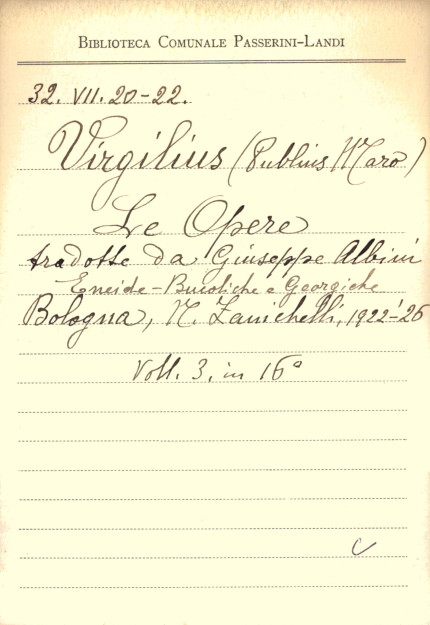 BIBLIOTECA COMUNALE PASSERINI-LANDI
32. VII. 20-22.
Virgilius (Publius Maro)
Le Opere
tradotte da Giuseppe Albini
Eneide - Bucoliche e Georgiche
Bologna, N. Zanichelli, 1922-'26
Voll. 3. in 16°